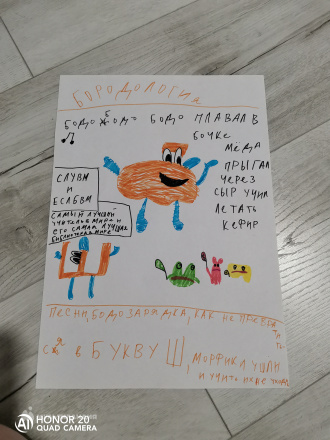 БОРОДОЛОГИЯ
БОДО БОДО ПЛАВАЛ В
БОЧКЕ
МЁДА
ПРЫГАЛ
ЧЕРЕЗ
СЫР УЧИЛ
ЛЕТАТЬ
КЕФИР
СЛУВИ
И
ЕСЛБВИ
САМЫЙ ЛУЧШИЙ
УЧИТЕЛЬ В МИРЕ И
ЕГО САМАЯ ЛУЧШАЯ
ПЕСНИ, БОДОЗАРЯДКА, КАК НЕ ПРЕВРАТИТЬ
СЯ В БУКВУ Ш, МОРФИКИ УШЛИ
И УЧИТЬ
HONOR 20
AI QUAD CAMERA